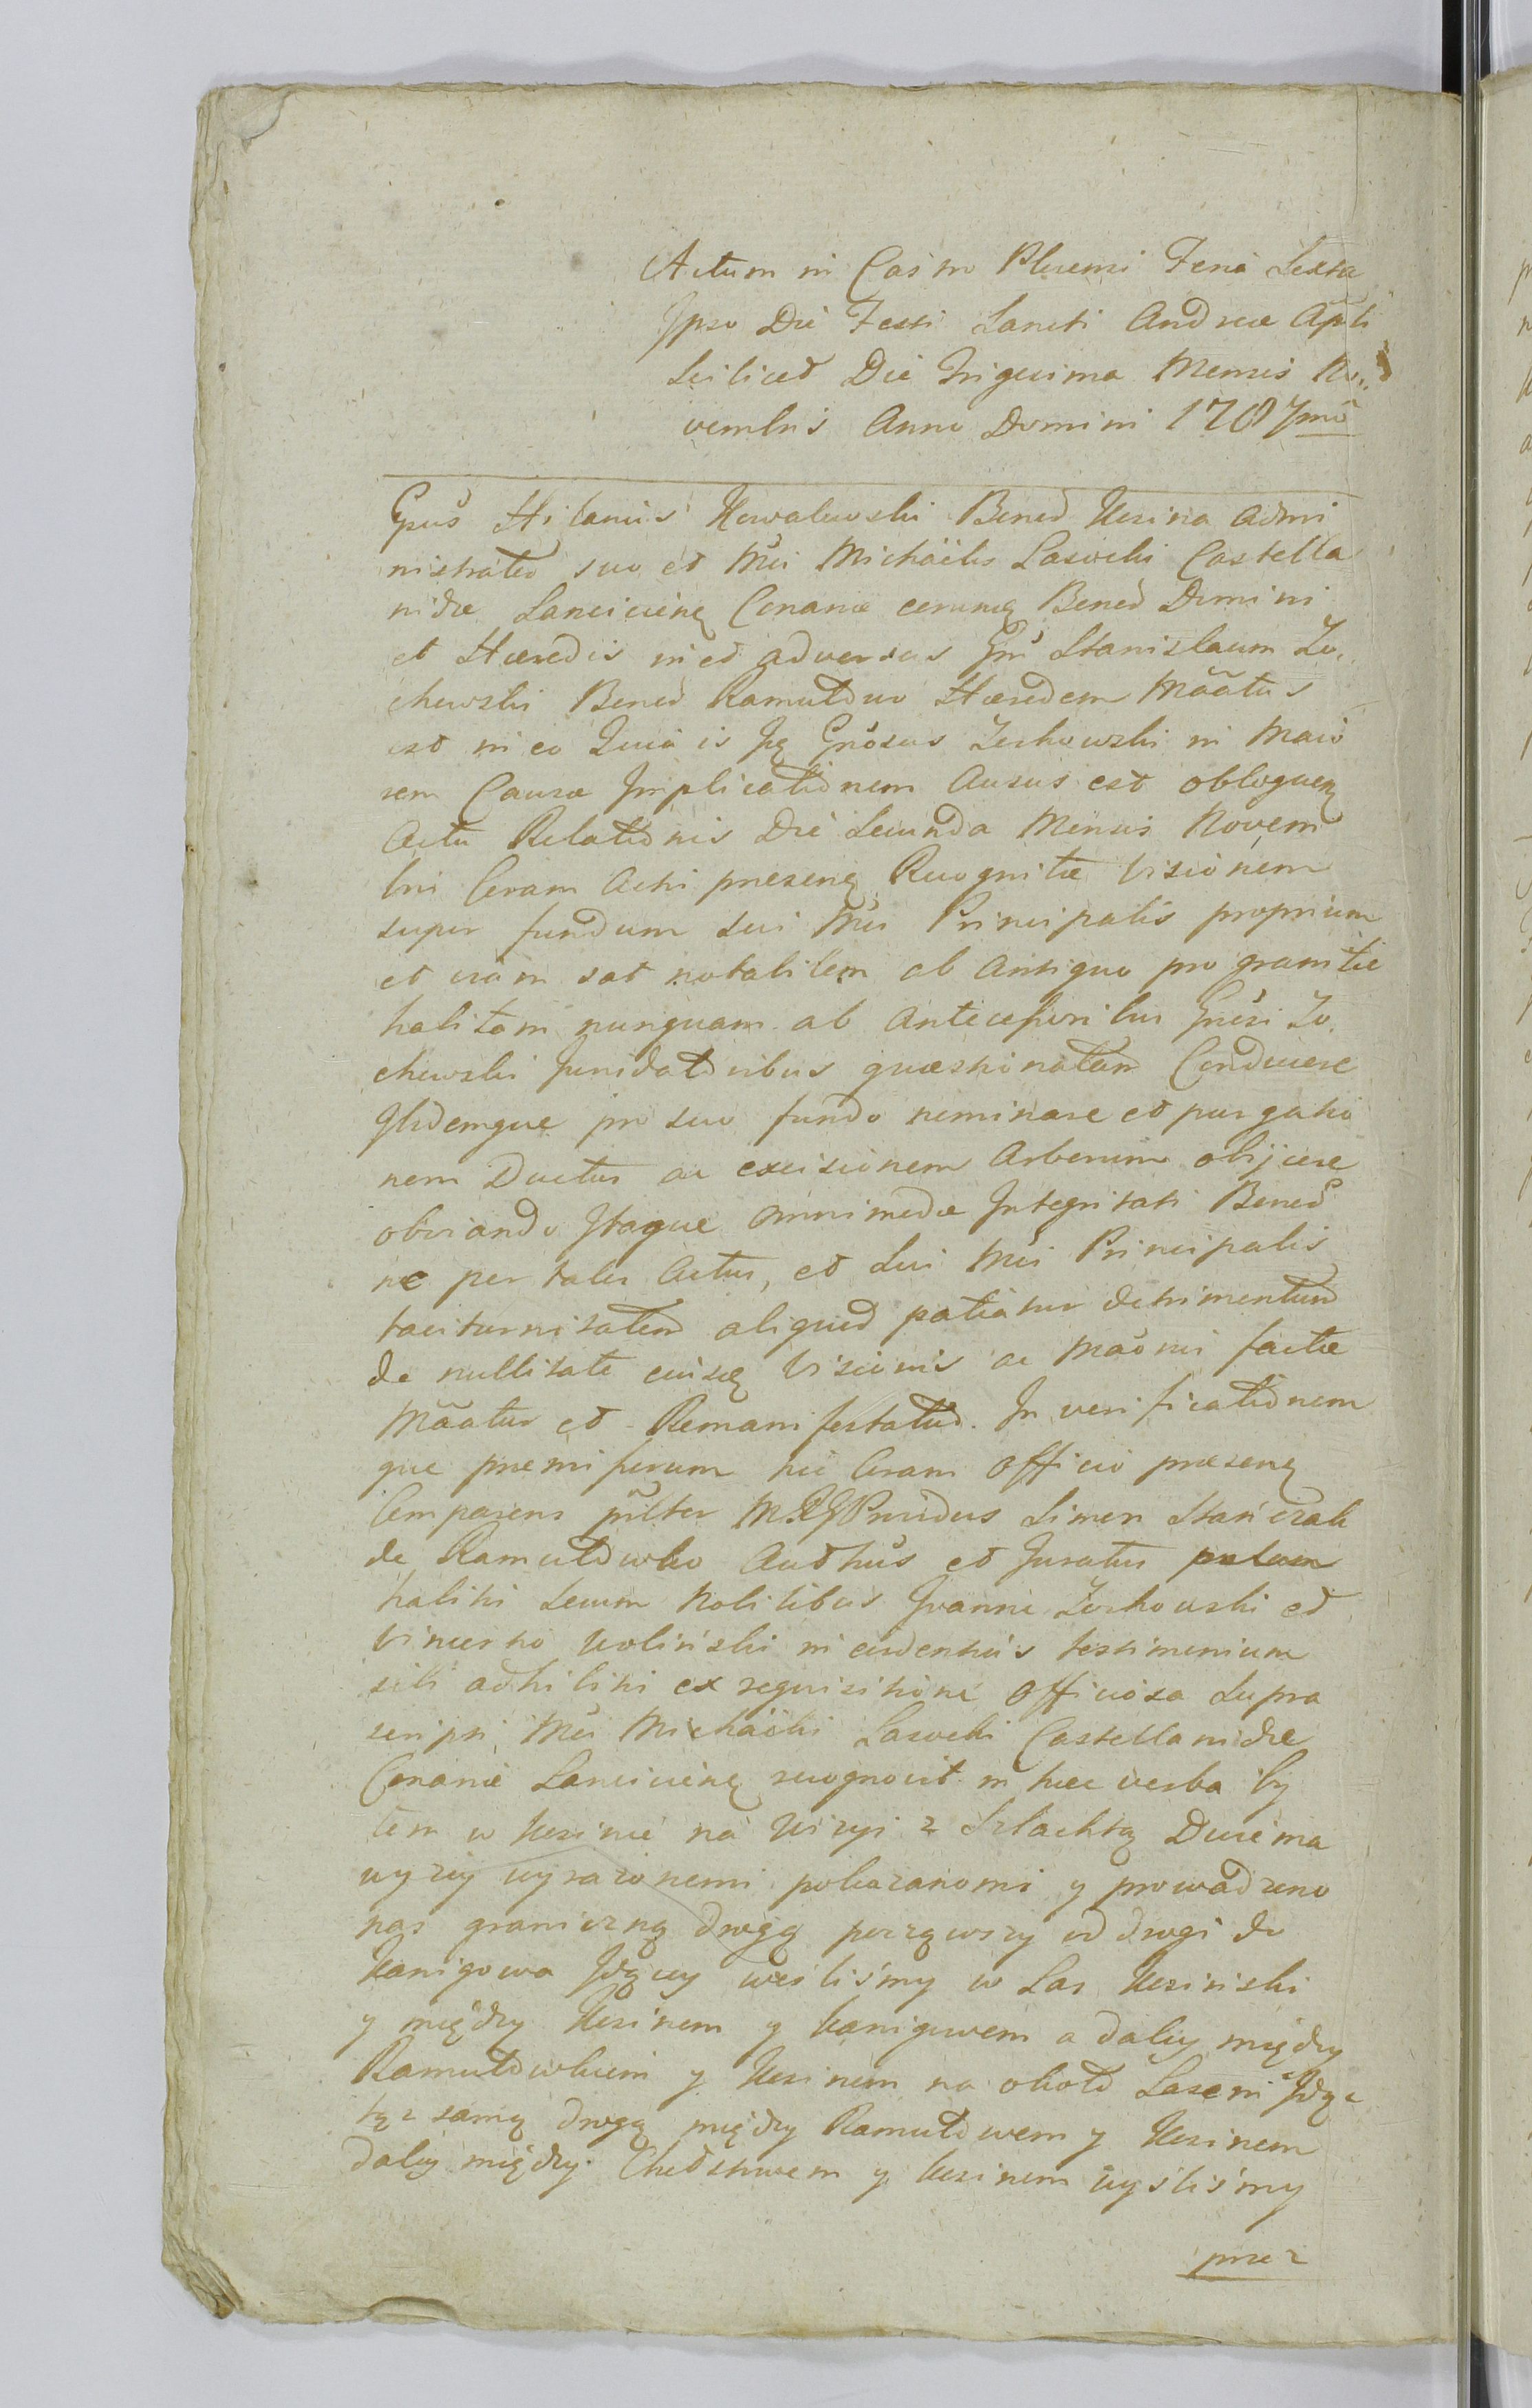 Actum in Casm Plucensi Feria Sexta
Ipso Die Festi Sancti Andreæ Apli
Scilicet Die Trigesima Mensis No„
vembris Anno Domini 1787mo
Gnus Hilarius Kowalewski Bonod Uszina Admi
nistrator suo et Mci Michäelis Lasocki Castella
nidæ Lancicieñ nomine eorumq Bonod Domini
et Hæredis nied adversus Gm Stanislaum Zo„
chowski Bonod Ramutowo Hæredem Mããtus
est in eo Quia is Iq Gnosus Zochowski in Maio
rem Causæ Implicationem Ausus est obloquenq
Actu Relationis Die Secunda Mensis Novem
bris Coram Actis presenq Recognitæ Visionem
super fundum sui Mci Principalis proprium
et viam sat notabilem ab Antiquo pro granitie
habitam nunquam ab Antecessoribus Gnosi Zo„
chowski quæstionatam Conducere
Illidemque pro suo fundo nominare et purgatio
nem Ductus ac excisionem Arborum objicere
obviando Itaque omnimodæ Integritati Bonod
ne per tales Actus, et Sui Mci Principalis
taciturnitatem aliquod patiatur detrimentum
de nullitate eiusq Visionis ac maõnis factæ
Mããtur et Remanifestatur. In verificationem
que premissorum hic Coram Officio præsenq
Comparens pñlter Providus Simon Stańczak
de Ramutowko Authus et Juratus palam
habitis Secum Nobilibus Joanne Zochowski et
Vincentio Woliński in evidentius testimonium
sibi adhibitis ex requisitione Officiosa Supra
scripti Mci Michäelis Lasocki Castellanidæ
Lancicieñ recognovit in hæc verba by
łem w Uszinie na Wizyi z Szlachtą Dwiema
wyżey wyrażonemi pokazanomi y prowadzono
nas graniczną drogą począwszy od drogi do
Kanigowa Idący weśliśmy w Las Usziński
y między Uszinem y Kanigowem a daley między
Ramutowkiem y Uszinem na okoto Lasem Idąc
tąż samą drogą między Ramutowem y Uszinem
daley między Chotkowem y Uszinem wyśliśmy
prze z